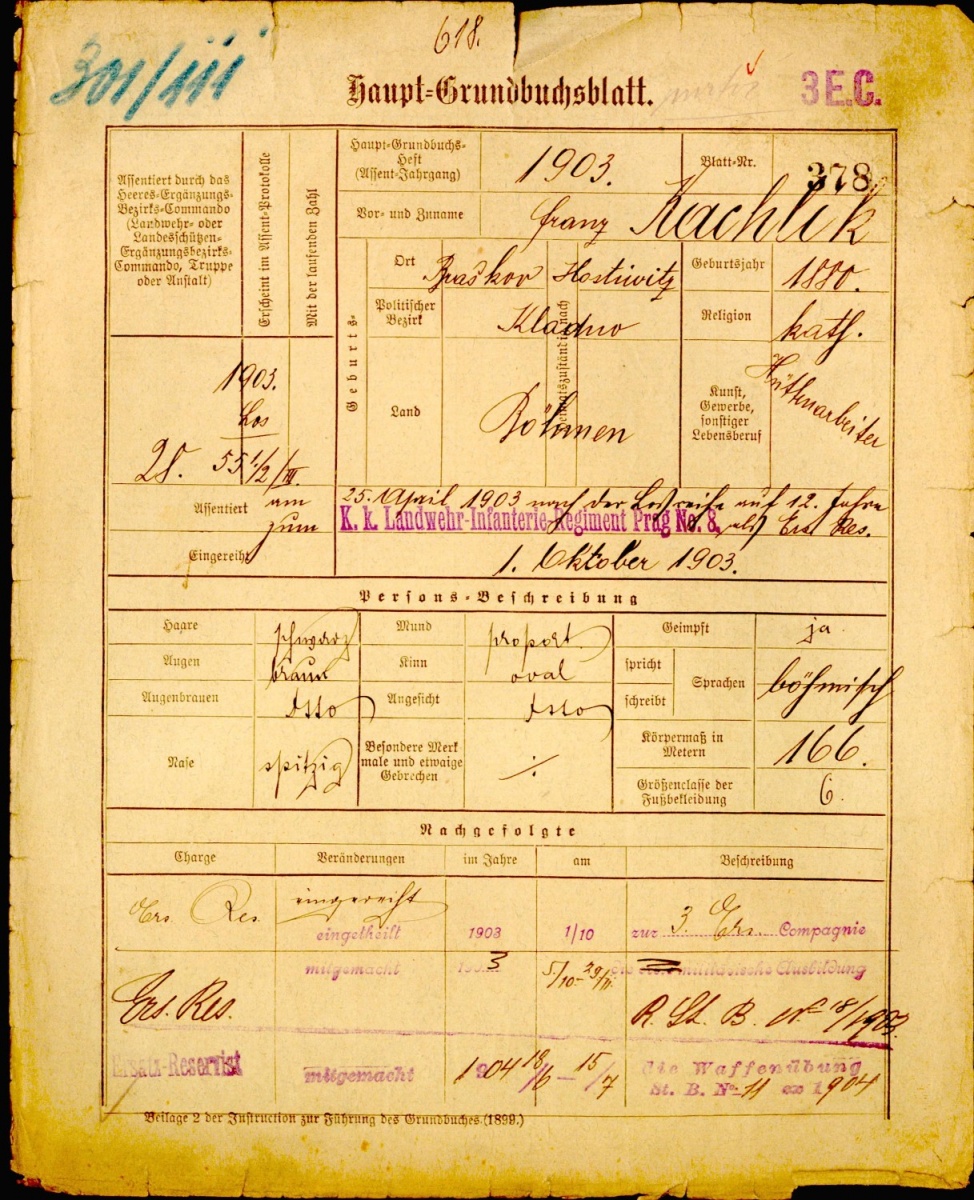 618.
301/III
Haupt-Grundbuchsblatt.
3 E.C.
Assentiert durch das
Heeres-Ergänzungs-
Bezirks-Commando
(Landwehr- oder
Landesschützen-
Ergänzungsbezirks-
Commando, Truppe
oder Anstalt)
Erscheint im Assent-Protokolle
Mit der laufenden Zahl
Haupt-Grundbuchs-
Heft
(Assent-Jahrgang)
1903.
Blatt-Nr.
378.
Vor- und Zuname
Franz Kachlik
Geburts-
Ort
Braškov
Hostiwitz
Geburtsjahr
1880.
Politischer
Bezirk
Kladno
Religion
kath.
Land
Böhmen
Kunst,
Gewerbe,
sonstiger
Lebensberuf
Hüttenarbeiter
1903.
Los
28. 55 1/2/III.
Assentiert
am
25. April 1903 nach der Losreihe auf 12 Jahre
zum
K. k. Landwehr-Infanterie-Regiment Prag No. 8. als Ers. Res.
Eingereiht
1. Oktober 1903.
Persons-Beschreibung
Haare
schwarz
Mund
proport.
Geimpft
ja
Augen
braun
Kinn
oval
spricht
schreibt
Sprachen
böhmisch
Augenbrauen
dsso
Angesicht
dsso
Nase
spitzig
Besondere Merk
male und etwaige
Gebrechen
·/·
Körpermaß in
Metern
166.
Größenclasse der
Fußbekleidung
6.
Nachgefolgte
Charge
Veränderungen
im Jahre
am
Beschreibung
Ers. Res.
eingereiht
eingetheilt
1903
1/10
zur 3. Ers. Compagnie
mitgemacht
3
5/10–29/11
militärische Ausbildung
Ers. Res.
R. St. B. No 18/1903.
Ersatz-Reservist
mitgemacht
1904
18/6 – 15/7
die Waffenübung
St. B. No 11 ex 1904
Beilage 2 der Instruction zur Führung des Grundbuches (1899.)